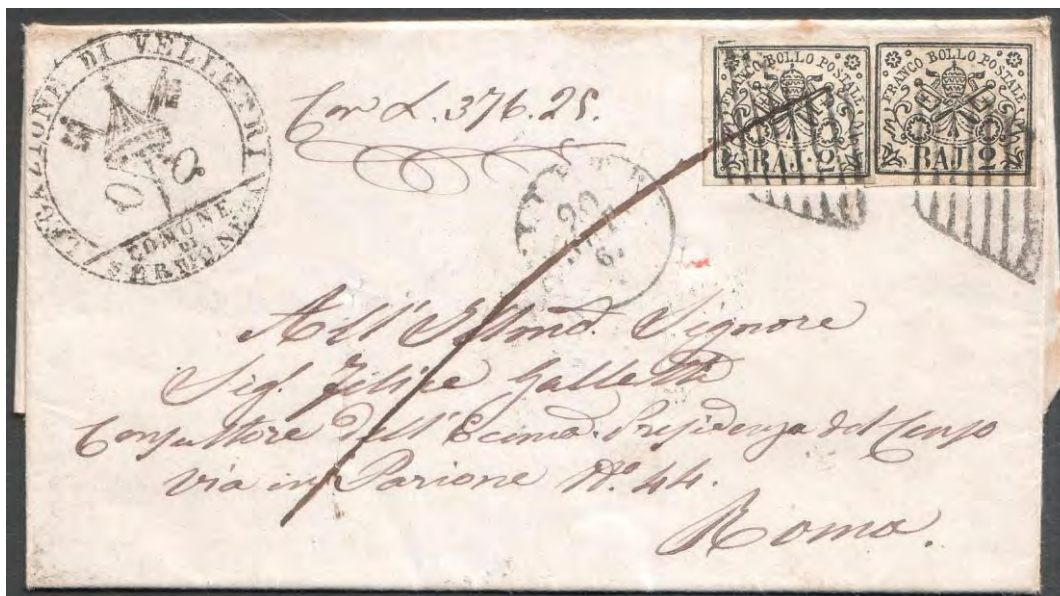 LEGAZIONE DI VELLETRI
COMUNE
DI
SERMONETA
Con L. 376.25.
FRANCO BOLLO POSTALE
BAJ. 2
FRANCO BOLLO POSTALE
BAJ. 2
20
6.
All'Illmo. Signore
Sig. Felice Galletti
Consultore dell'Eccma. Presidenza del Censo
via in Parione No. 44.
Roma.